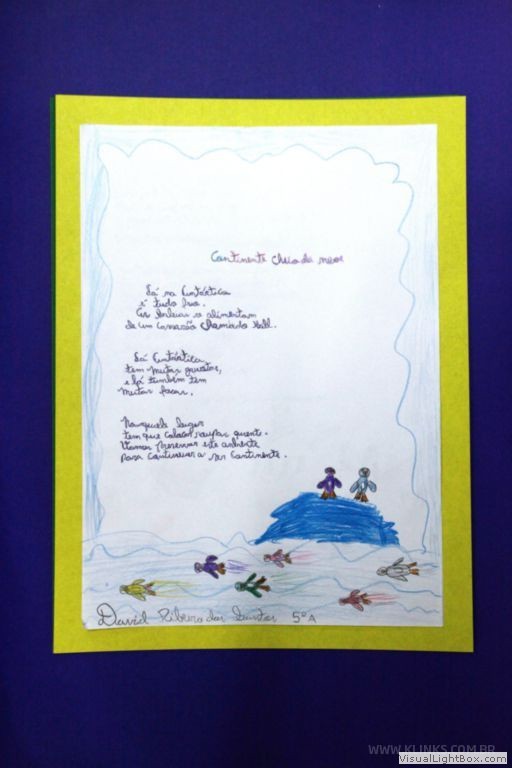 Continente cheio de neve
Lá na Antártica
é tudo frio.
As baleias se alimentam
de um camarão chamado krill.
Lá Antártica
tem muitas gaivotas,
e lá também tem
muitas focas.
Naquele lugar
tem que colocar roupas quente.
Vamos preservar este ambiente
para continuar a ser continente.
David Ribeiro dos Santos 5º A
WWW.KLINKS.COM.BR
VisualLightBox.com